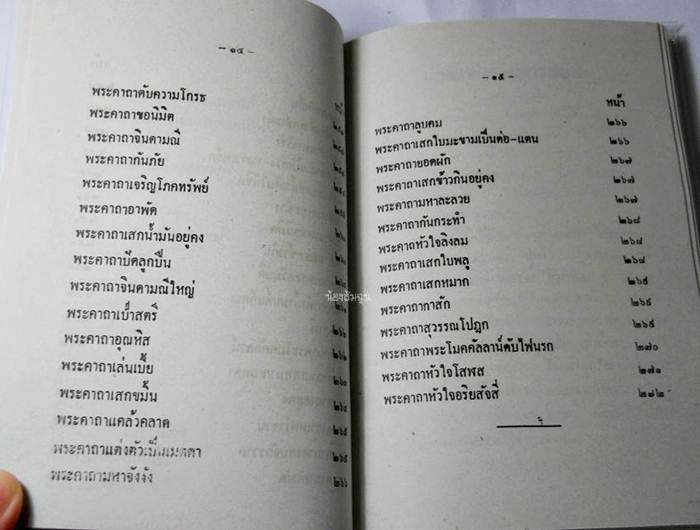 - ๑๔ -
พระคาถาดับความโกรธ
พระคาถาขอนิมิต
พระคาถาจินดามณี
พระคาถากันภัย
พระคาถาเจริญโภคทรัพย์
พระคาถาอาพัด
พระคาถาเสกน้ำมันอยู่คง
พระคาถาปิดลูกปืน
พระคาถาจินดามณีใหญ่
พระคาถาเป่าสตรี
พระคาถาอุณหิส
พระคาถาเล่นเบี้ย
พระคาถาเสกขมิ้น
พระคาถาแคล้วคลาด
พระคาถาแต่งตัวเป็นเมตตา
พระคาถามหาจังงัง ๒๖๖
น้องส้มฉุน
- ๑๕ -
หน้า
พระคาถาลูบคม ๒๖๖
พระคาถาเสกใบมะขามเป็นต่อ-แตน ๒๖๖
พระคาถายอดผัก ๒๖๗
พระคาถาเสกข้าวกินอยู่คง ๒๖๗
พระคาถามหาละลวย ๒๖๗
พระคาถากันกระทำ ๒๖๘
พระคาถาหัวใจลิงลม ๒๖๘
พระคาถาเสกใบพลู ๒๖๘
พระคาถาเสกหมาก ๒๖๙
พระคาถากาสัก ๒๖๙
พระคาถาสุวรรณโปฎก ๒๖๙
พระคาถาพระโมคคัลลาน์ดับไฟนรก ๒๗๐
พระคาถาหัวใจโสฬส ๒๗๑
พระคาถาหัวใจอริยสัจสี่ ๒๗๒